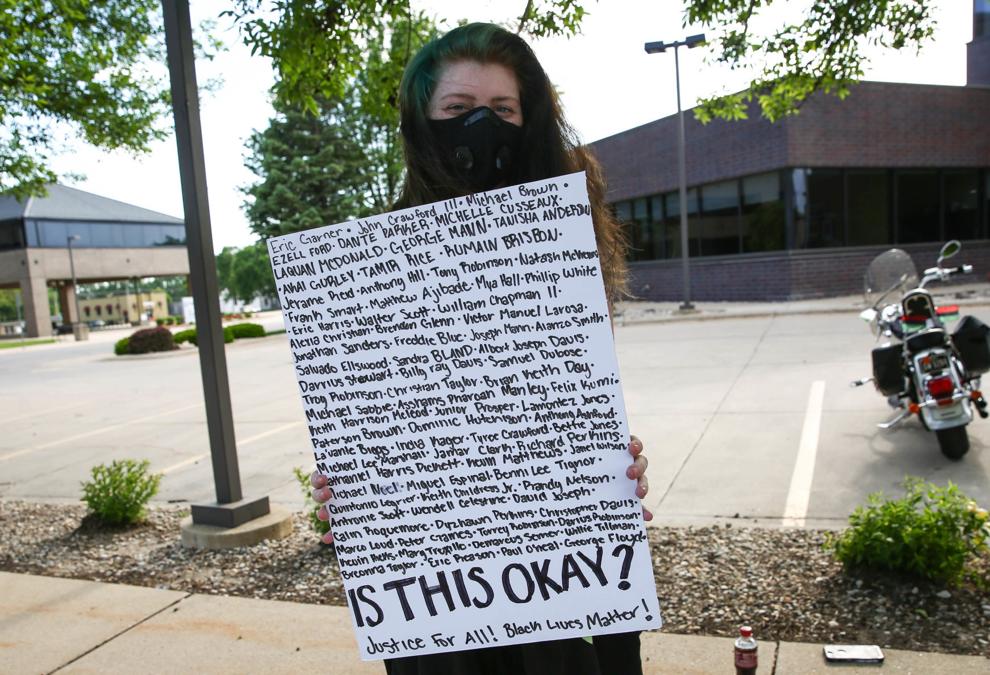 Eric Garner • John Crawford III • Michael Brown •
EZELL FORD • DANTE PARKER • MICHELLE CUSSEAUX •
LAQUAN MCDONALD • GEORGE MANN • TANISHA ANDERSON
AKAI GURLEY • TAMIR RICE • RUMAIN BRISBON •
Jerame Reid • Anthony Hill • Tony Robinson • Natasha McKenna
Frank Smart • Matthew Ajibade • Mya Hall • Phillip White
Eric Harris • Walter Scott • William Chapman II •
Alexia Christian • Brendon Glenn • Victor Manuel Larosa •
Jonathan Sanders • Freddie Blue • Joseph Mann • Alonzo Smith •
Salvado Ellswood • Sandra BLAND • Albert Joseph Davis •
Darrius Stewart • Billy ray Davis • Samuel Dubose •
Troy Robinson • Christian Taylor • Brian Keith Day •
Michael Sabbie • Asshams Pharoah Manley • Felix Kumi •
Keith Harrison McLeod • Junior Prosper • Lamontez Jones •
Paterson Brown • Dominic Hutchison • Anthony Ashford •
a'vante Biggs • India Kager • Tyree Crawford • Bettie Jones •
Michael Lee Marshall • Jamar Clark • Richard Perkins •
Nathaniel Harris Pickett • Keith Matthews • Janet Wilson •
Michael Noel • Miguel Espinal • Benni Lee Tignor •
Quintonio Legrier • Keith Childress Jr. • Randy Nelson •
Antronie Scott • Wendell Celestine • David Joseph •
Calin Roquemore • Dyzhawn Perkins • Christopher Davis •
Marco Loud • Peter Gaines • Torrey Robinson • Darius Robinson •
Kevin Hicks • Mary Trujillo • Demarcus Semer • Willie Tillman •
Breonna Taylor • Eric Reason • Paul O'neal • George Floyd •
IS THIS OKAY?
Justice For All! Black Lives Matter!